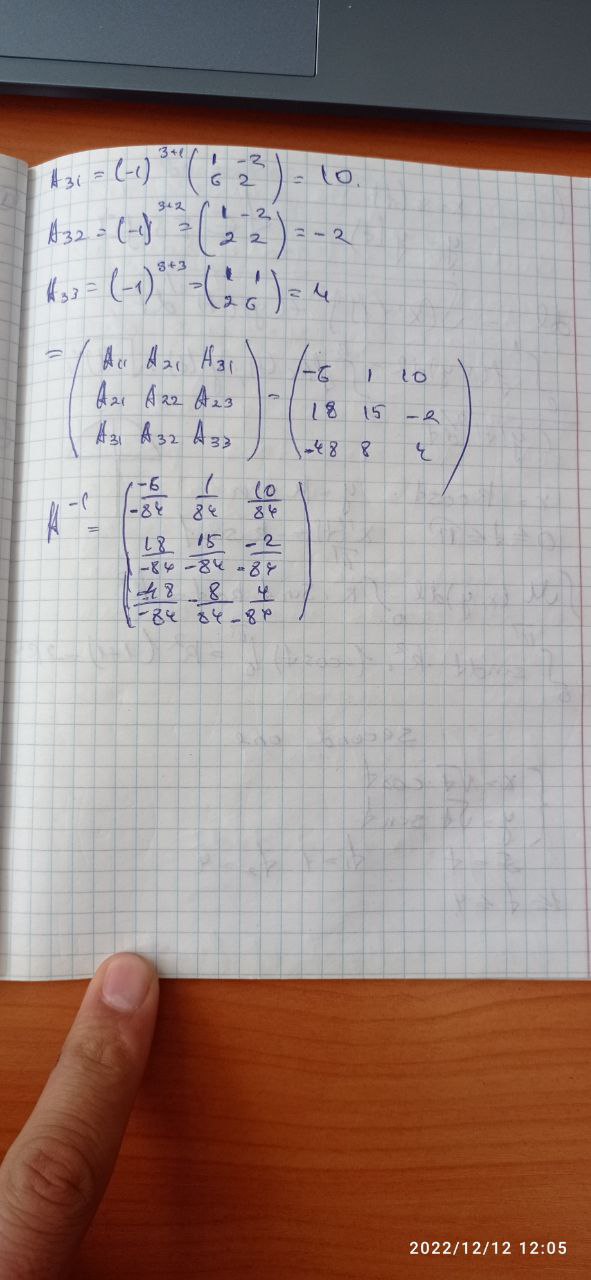 A₃₁ = (-1)³⁺¹ (1 -2; 6 2) = 10.
A₃₂ = (-1)³⁺² = (1 -2; 2 2) = -2
A₃₃ = (-1)³⁺³ = (1 1; 2 6) = 4
= (A₁₁ A₂₁ A₃₁; A₂₁ A₂₂ A₂₃; A₃₁ A₃₂ A₃₃) = (-6 1 10; 18 15 -2; -48 8 4)
A⁻¹ = (-6/-84 1/84 10/84; 18/-84 15/-84 -2/-84; -48/-84 -8/84 4/-84)
2022/12/12 12:05